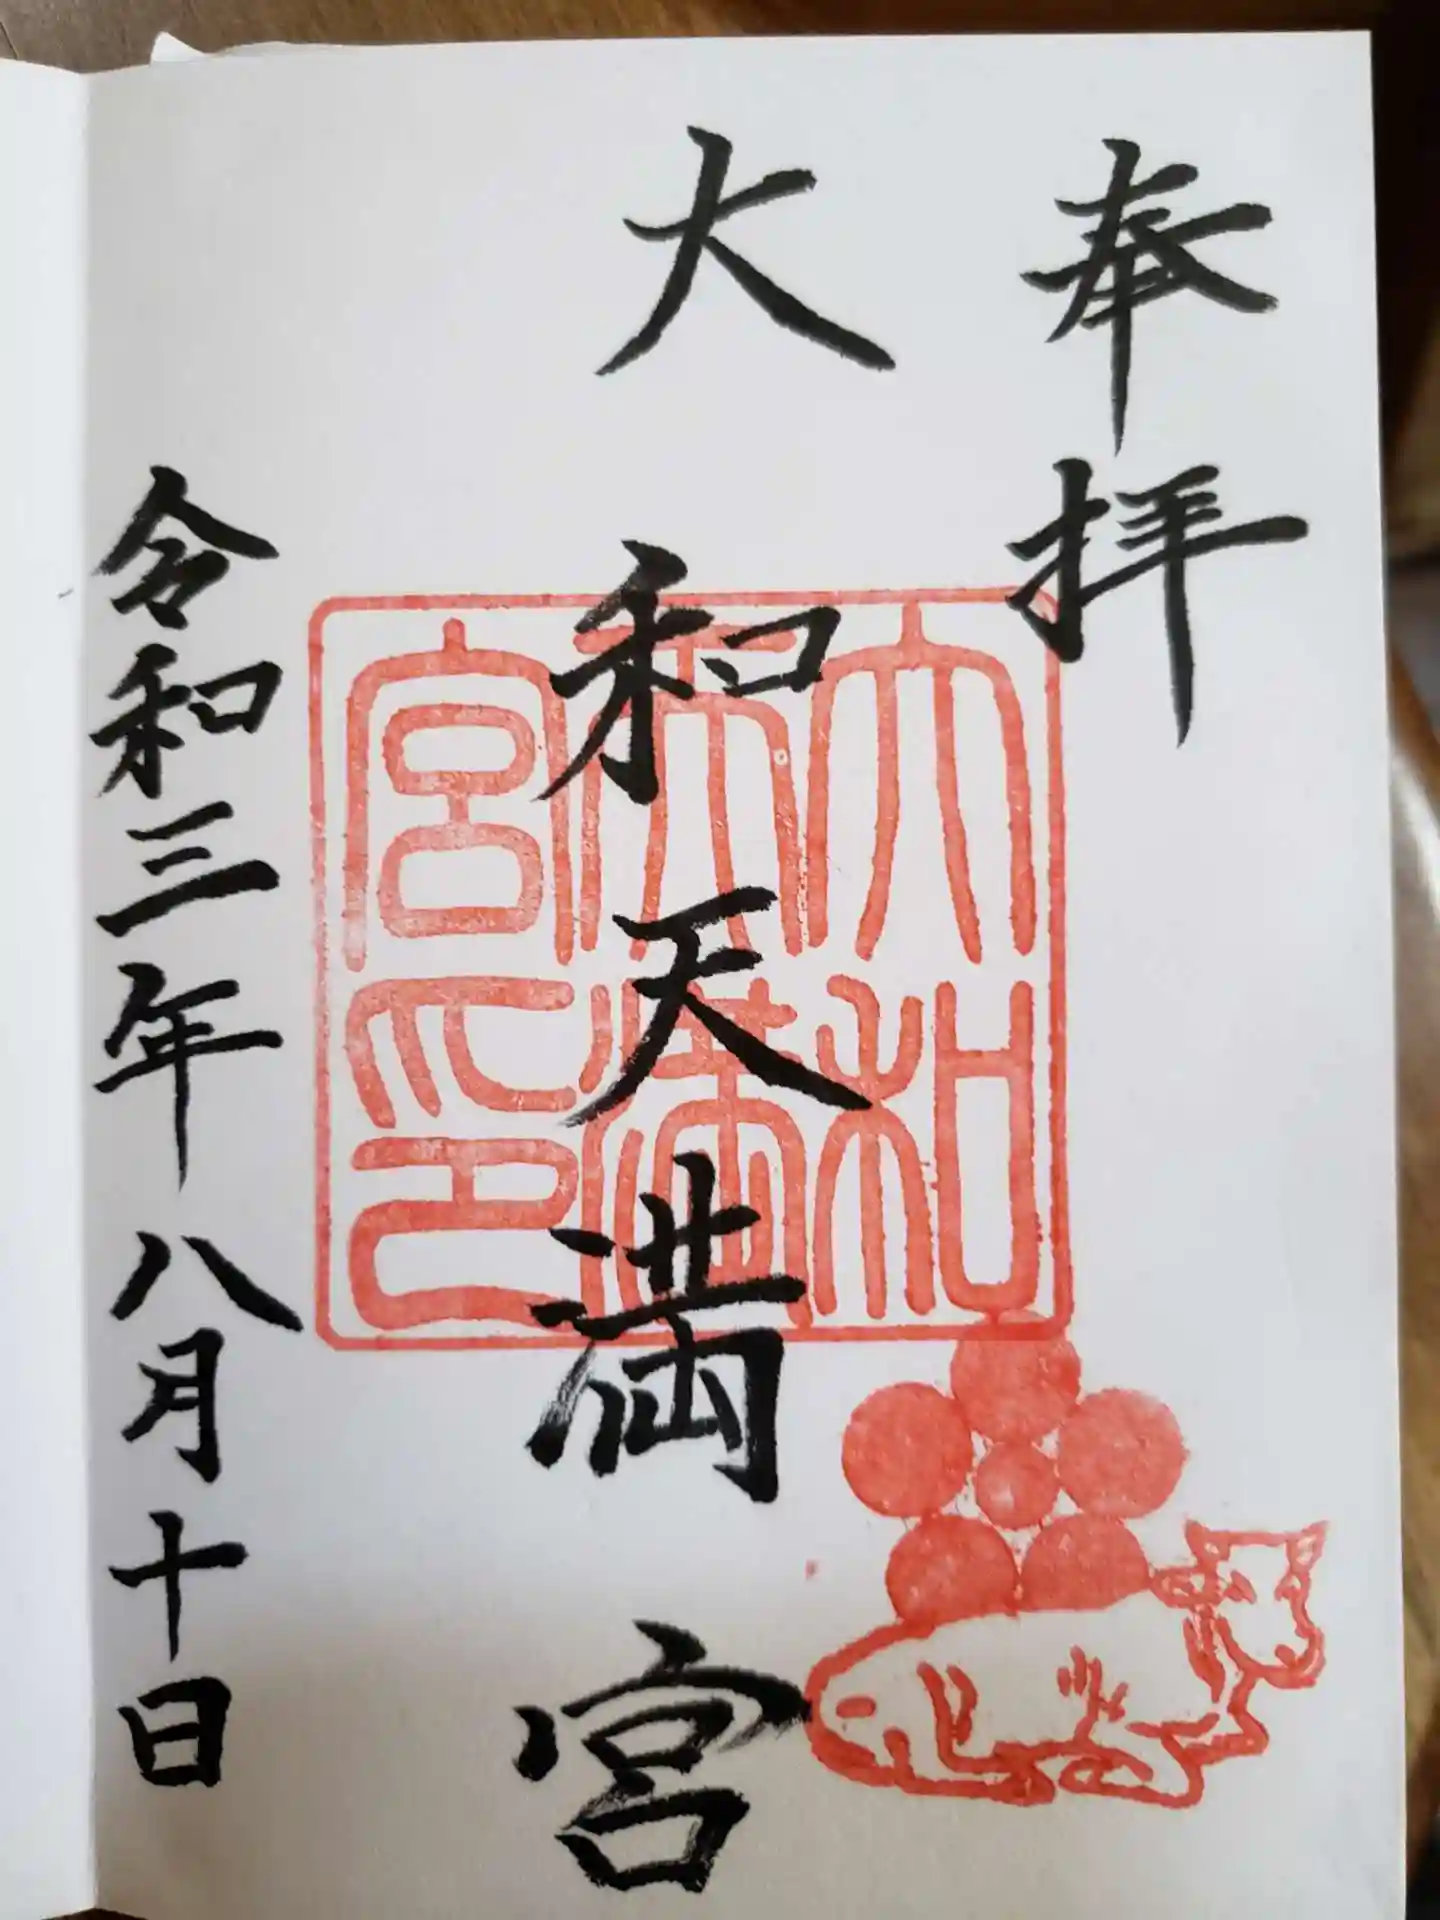 奉拝
大和天満宮
大和天満宮印
令和三年八月十日